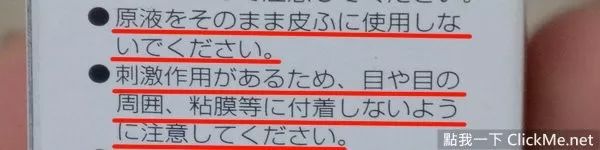 ●原液をそのまま皮ふに使用しな
いでください。
●刺激作用があるため、目や目の
周囲、粘膜等に付着しないよう
に注意してください。
點我一下 ClickMe.net